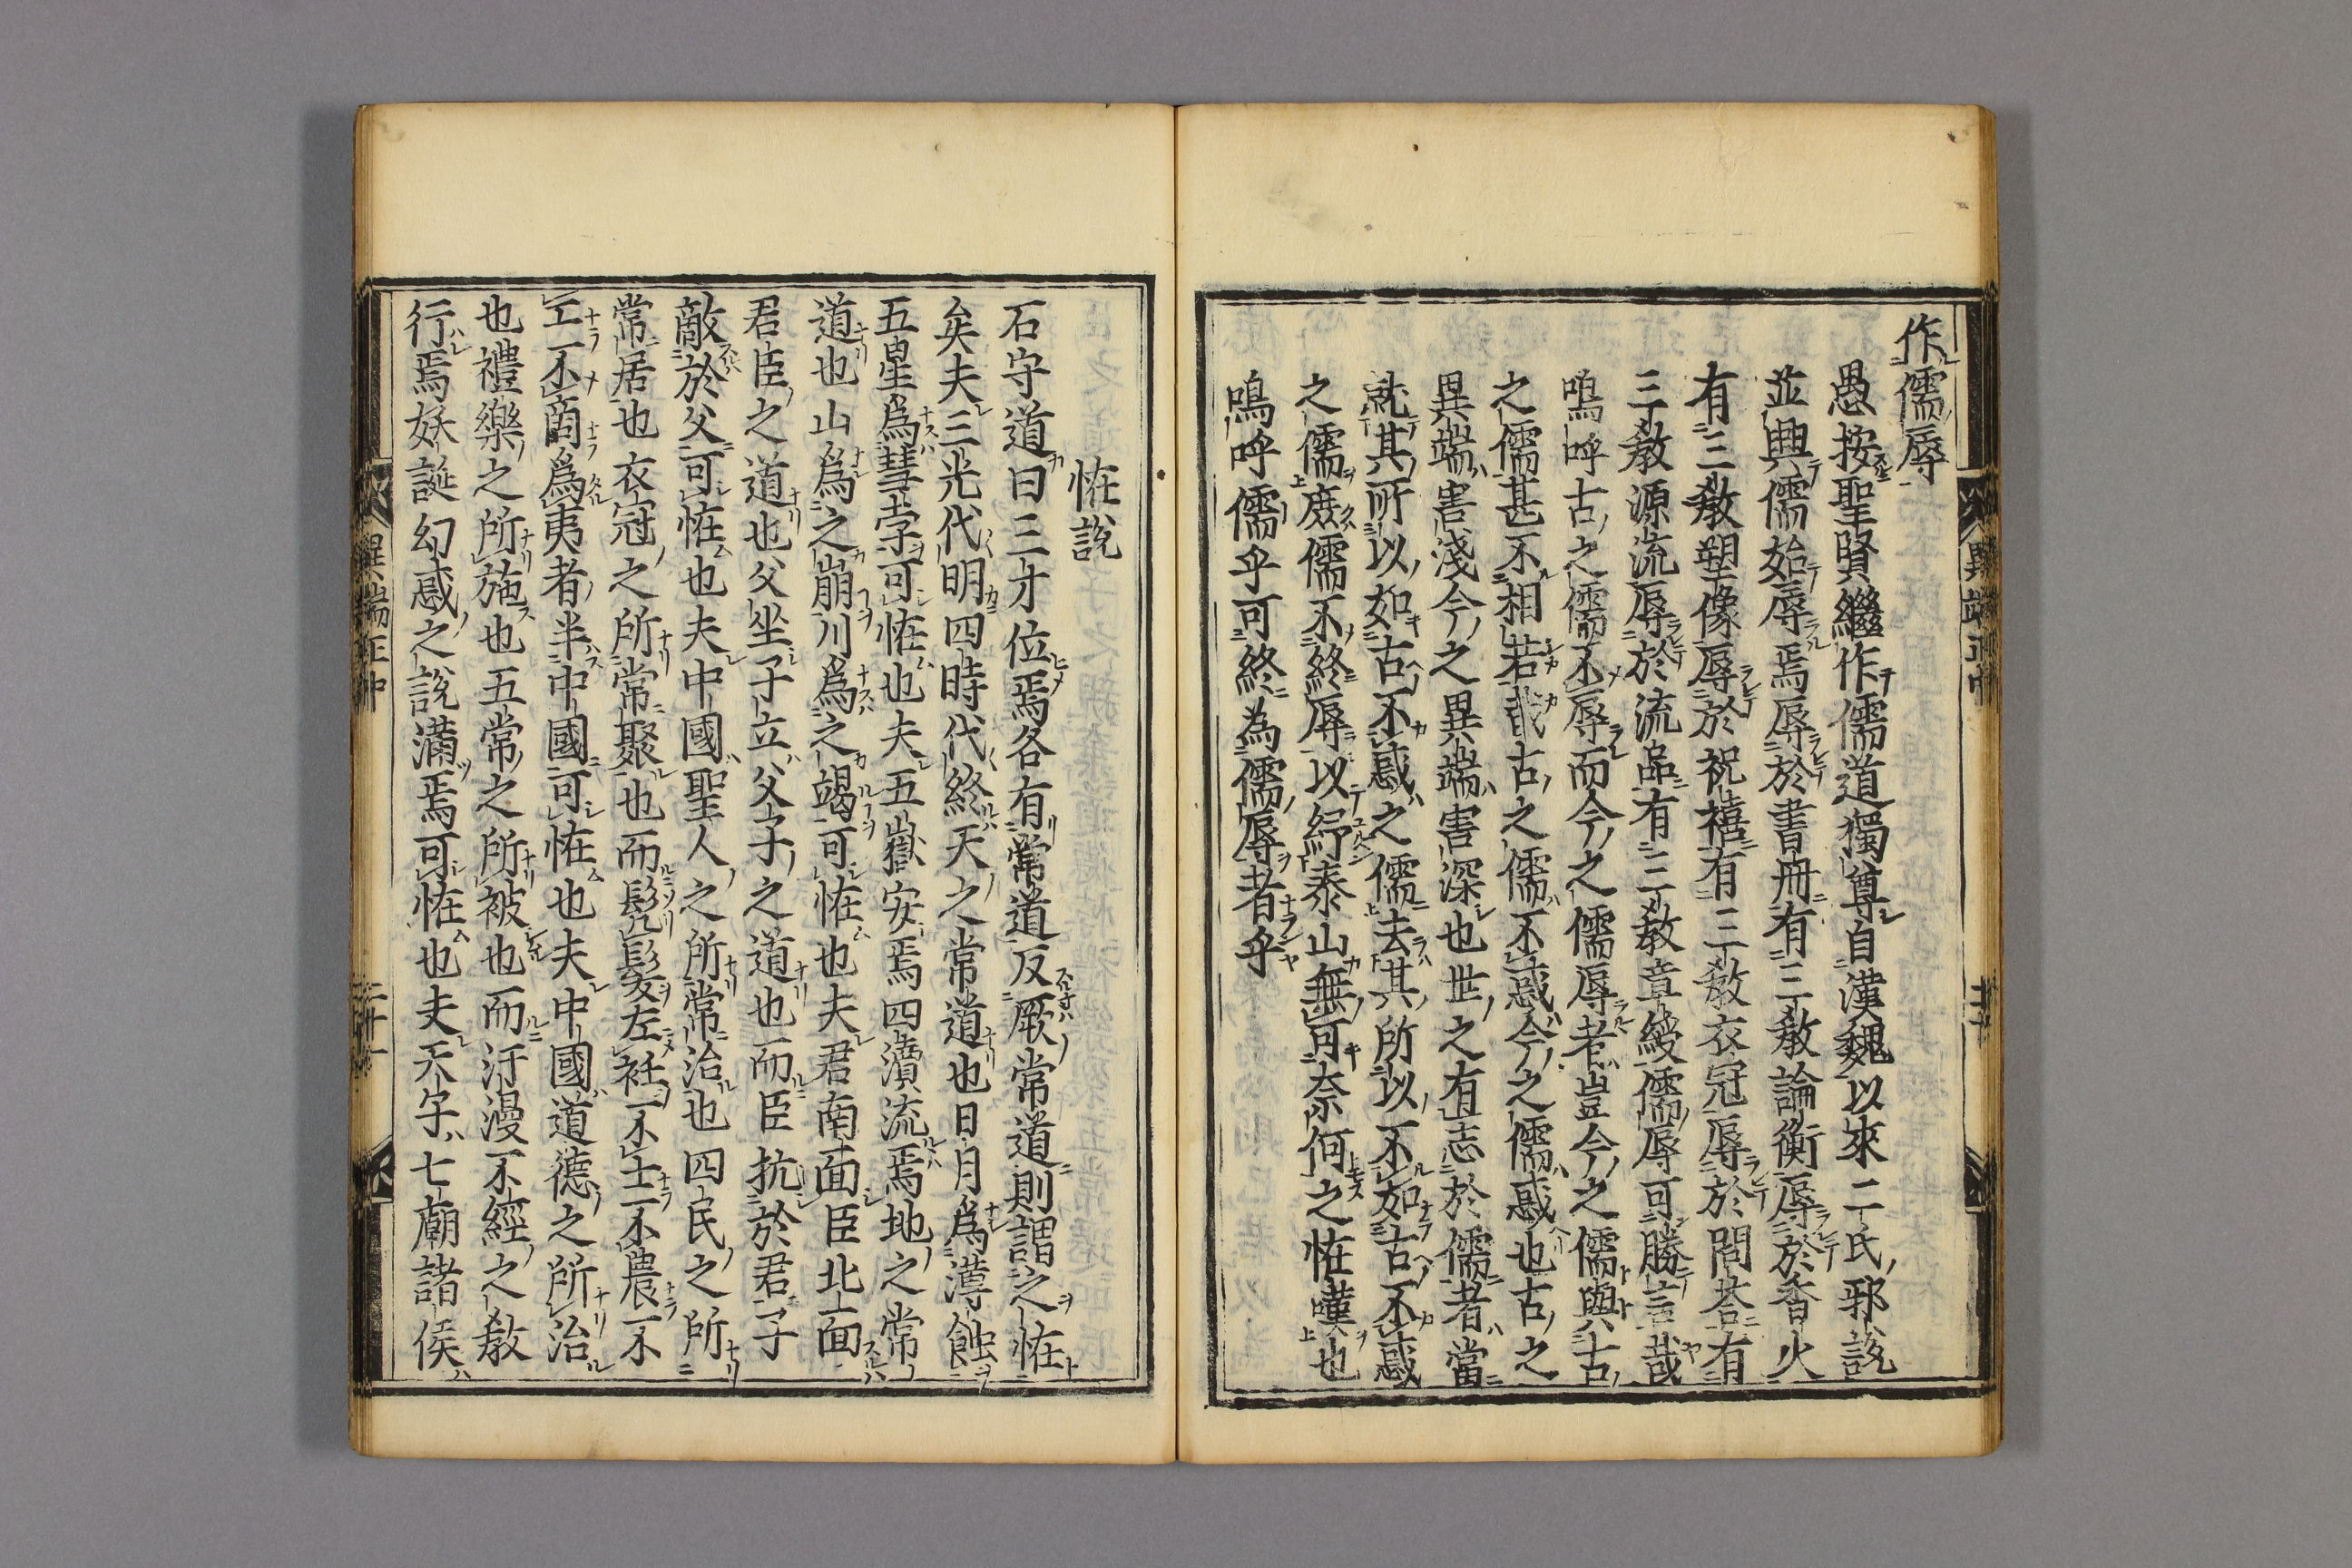 作儒辱
愚按聖賢繼作儒道獨尊自漢魏以來二氏邪說
並興儒始辱焉辱於書冊有三教論衡辱於香火
有三教塑像辱於祝禧有三教衣冠辱於問荅有
三教源流辱於流品有三教章綬儒辱可勝言哉
嗚呼古之儒不辱而今之儒辱者豈今之儒與古
之儒甚不相若哉古之儒不惑今之儒惑也古之
異端害淺今之異端害深也世之有志於儒者當
就其所以如古不惑之儒去其所以不如古不惑
之儒庶儒不終辱以紓泰山無可奈何之恠嘆也
嗚呼儒乎可終為儒辱者乎
恠說
石守道曰三才位焉各有常道反厥常道則謂之恠
矣夫三光代明四時代終天之常道也日月爲薄蝕
五星爲彗孛可恠也夫五嶽安焉四瀆流焉地之常
道也山爲之崩川爲之竭可恠也夫君南面臣北面
君臣之道也父坐子立父子之道也而臣抗於君子
敵於父可恠也夫中國聖人之所常治也四民之所
常居也衣冠之所常聚也而髡髮左衽不士不農不
工不商爲夷者半中國可恠也夫中國道德之所治
也禮樂之所施也五常之所被也而汙漫不經之教
行焉妖誕幻惑之說滿焉可恠也夫天子七廟諸侯
異端正中